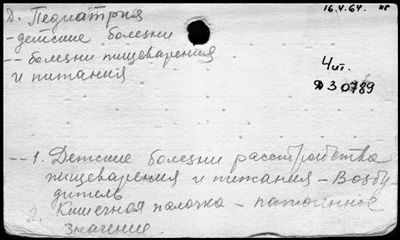 Д. Педиатрия
16.4.64.
- детские болезни
-- болезни пищеварения
и питания
Чит.
Д30789
-- 1. Детские болезни расстройства
пищеварения и питания - Возбу-
дитель
2. Кишечная палочка - патогенное
значение.